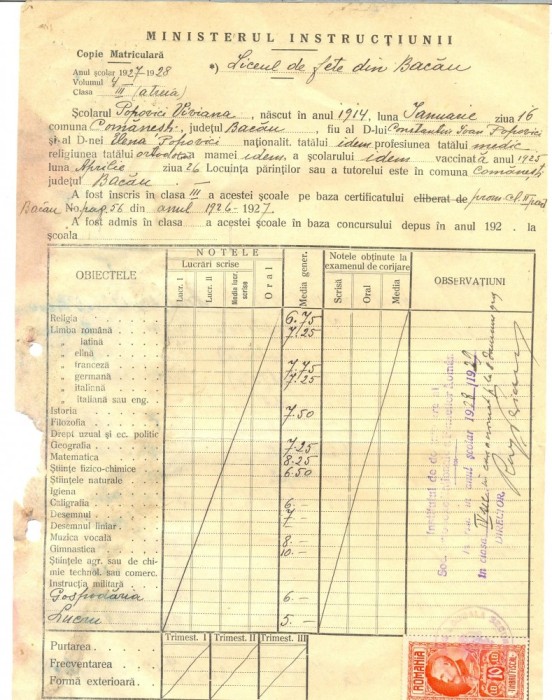 MINISTERUL INSTRUCȚIUNII
Copie Matriculară
Anul școlar 1927-1928
Volumul 4
Clasa III (a treia)
*) Liceul de fete din Bacău
Școlarul Popovici Viviana, născut în anul 1914, luna Ianuarie ziua 16
comuna Comănești, județul Bacău, fiu al D-lui Constantin Ioan Popovici
și al D-nei Elena Popovici naționalit. tatălui idem profesiunea tatălui medic
religiunea tatălui ortodoxa a mamei idem, a școlarului idem vaccinată anul 1925
luna Aprilie ziua 26 Locuința părinților sau a tutorelui este în comuna Comănești
județul Bacău.
A fost înscris în clasa III a acestei școale pe baza certificatului eliberat de prom. cl. II
Bacău No. pag. 56 din anul 1926-1927.
A fost admis în clasa a acestei școale în baza concursului depus în anul 192 . la
școala
OBIECTELE
NOTELE
Lucrări scrise
Lucr. I
Lucr. II
Media lucr. scrise
Oral
Media gener.
Notele obținute la examenul de corijare
Scrisă
Oral
Media
OBSERVAȚIUNI
Religia 6.75
Limba română 7.25
" latină
" elină
" franceză 7.75
" germană 7.25
" italiană
" italiana sau eng.
Istoria 7.50
Filozofia
Drept uzual și ec. politic
Geografia 7.25
Matematica 8.25
Științe fizico-chimice 6.50
Științele naturale
Igiena
Caligrafia 6.—
Desemnul 7.—
Desemnul liniar
Muzica vocală 8.—
Gimnastica 10.—
Științele agr. sau de chi-
mie technol. sau comerc.
Instrucția militară
Gospodăria 6.—
Lucru 5.—
Institutul de
în anul școlar 1928/1929
în clasa IV
DIRECTOR,
Trimest. I
Trimest. II
Trimest. III
Purtarea
Frecventarea
Formă exterioară
ROMANIA
10